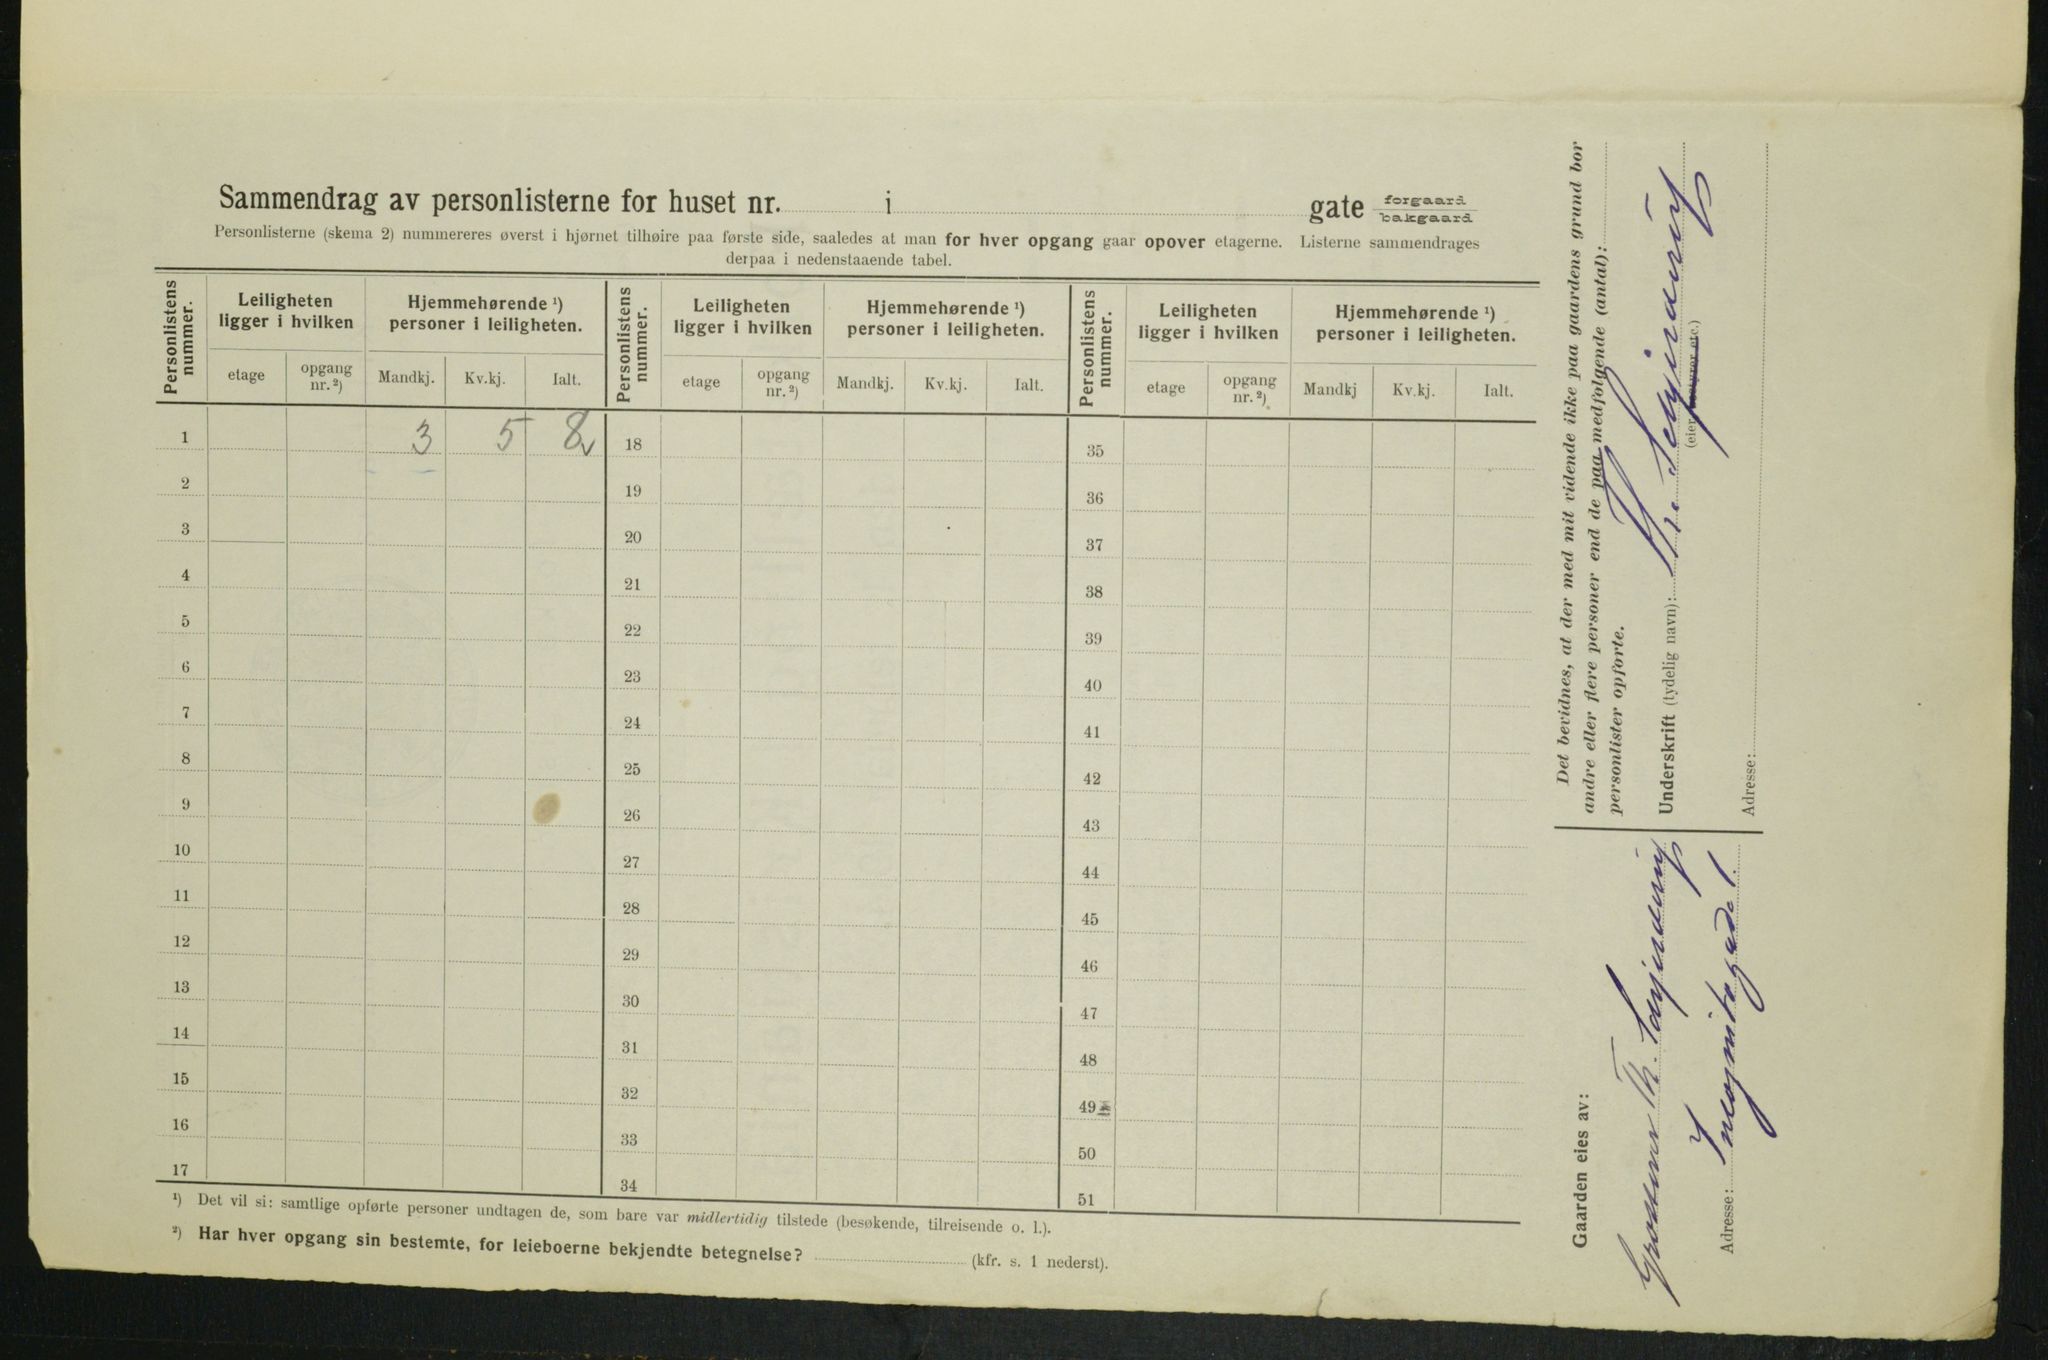 Sammendrag av personlisterne for huset nr. i gate forgaard
bakgaard
Personlisterne (skema 2) nummereres øverst i hjørnet tilhøire paa første side, saaledes at man for hver opgang gaar opover etagerne. Listerne sammendrages
derpaa i nedenstaaende tabel.
Personlistens nummer. Leiligheten ligger i hvilken Hjemmehørende ¹) personer i leiligheten. Personlistens nummer. Leiligheten ligger i hvilken Hjemmehørende ¹) personer i leiligheten. Personlistens nummer. Leiligheten ligger i hvilken Hjemmehørende ¹) personer i leiligheten.
etage opgang nr. ²) Mandkj. Kv.kj. Ialt. etage opgang nr. ²) Mandkj. Kv.kj. Ialt. etage opgang nr. ²) Mandkj Kv.kj. Ialt.
1 3 5 8 18 35
2 19 36
3 20 37
4 21 38
5 22 39
6 23 40
7 24 41
8 25 42
9 26 43
10 27 44
11 28 45
12 29 46
13 30 47
14 31 48
15 32 49
16 33 50
17 34 51
¹) Det vil si: samtlige opførte personer undtagen de, som bare var midlertidig tilstede (besøkende, tilreisende o. l.).
²) Har hver opgang sin bestemte, for leieboerne bekjendte betegnelse? (kfr. s. 1 nederst).
Det bevidnes, at der med mit vidende ikke paa gaardens grund bor
andre eller flere personer end de paa medfølgende (antal):
personlister opførte.
Underskrift (tydelig navn):
(eier,
Adresse:
Gaarden eies av:
Th.
Adresse: Incognitogade 1.